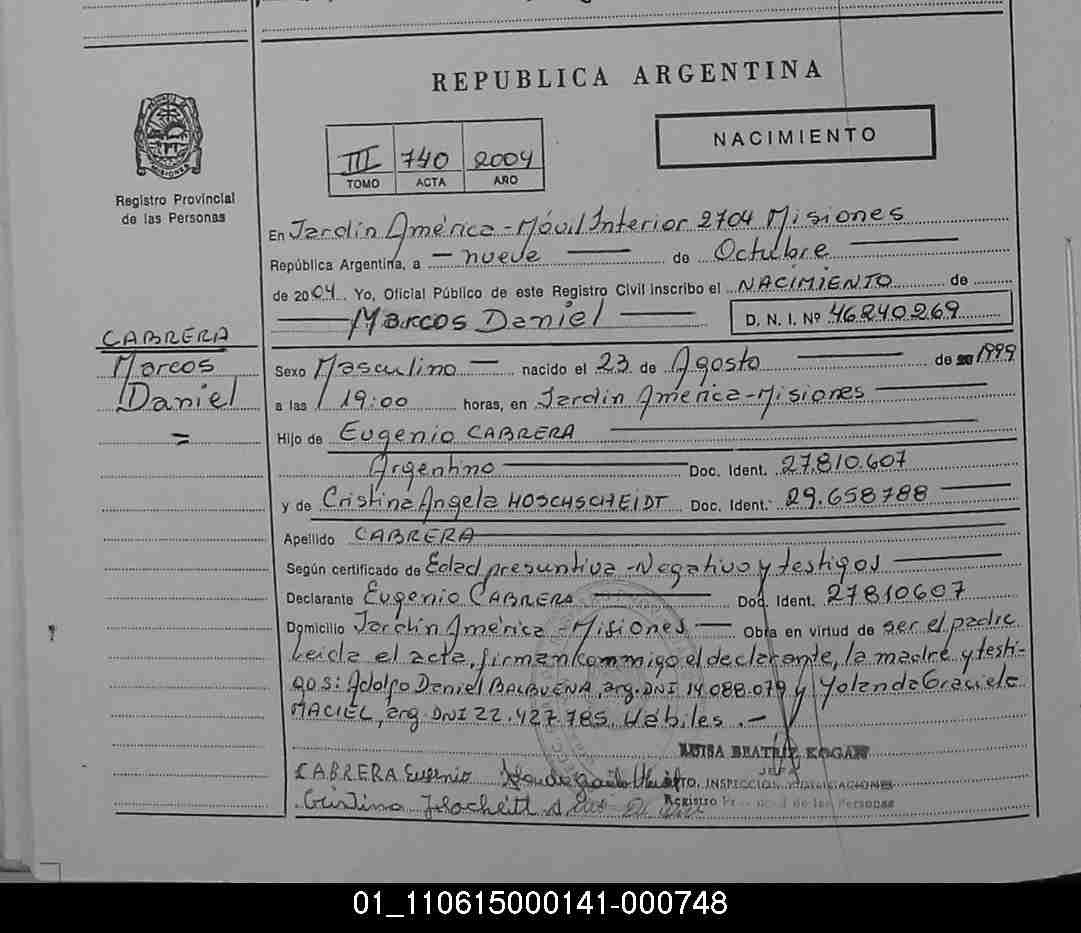 REPUBLICA ARGENTINA
MISIONES
Registro Provincial
de las Personas
III 740 2004
TOMO ACTA AÑO
NACIMIENTO
En Jardín América - Móvil Interior 2704 Misiones
República Argentina, a - nueve de Octubre
de 2004 Yo, Oficial Público de este Registro Civil inscribo el NACIMIENTO de
Marcos Daniel D. N. I. Nº 46240269
CABRERA
Marcos
Daniel
=
Sexo Masculino nacido el 23 de Agosto de 1999
a las 19:00 horas, en Jardín América - Misiones
Hijo de Eugenio CABRERA
Argentino Doc. Ident. 27.810.607
y de Cristina Angela HOSCHSCHEIDT Doc. Ident.: 29.658788
Apellido CABRERA
Según certificado de Edad presuntiva - Negativo y testigos
Declarante Eugenio CABRERA Doc. Ident. 27810607
Domicilio Jardín América - Misiones Obra en virtud de ser el padre
Leída el acta, firman conmigo el declarante, la madre y testi-
gos: Adolfo Daniel BALBUENA, arg. DNI 14.088.079 y Yolanda Graciela
MACIEL, arg. DNI 22.427.785. Hábiles. -
LUISA BEATRIZ KOGAN
JEFA
DTO. INSPECCION
CABRERA Eugenio
Registro de las Personas
Cristina
01_110615000141-000748